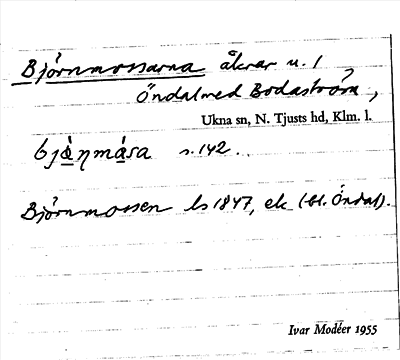 Björnmossarna åkrar u. 1
Öndal med Bodaström,
Ukna sn, N. Tjusts hd, Klm. l.
bjɷ̀ηmåsa s. 142.
Björnmossen ls 1847, ek (bl. Öndal).
Ivar Modéer 1955